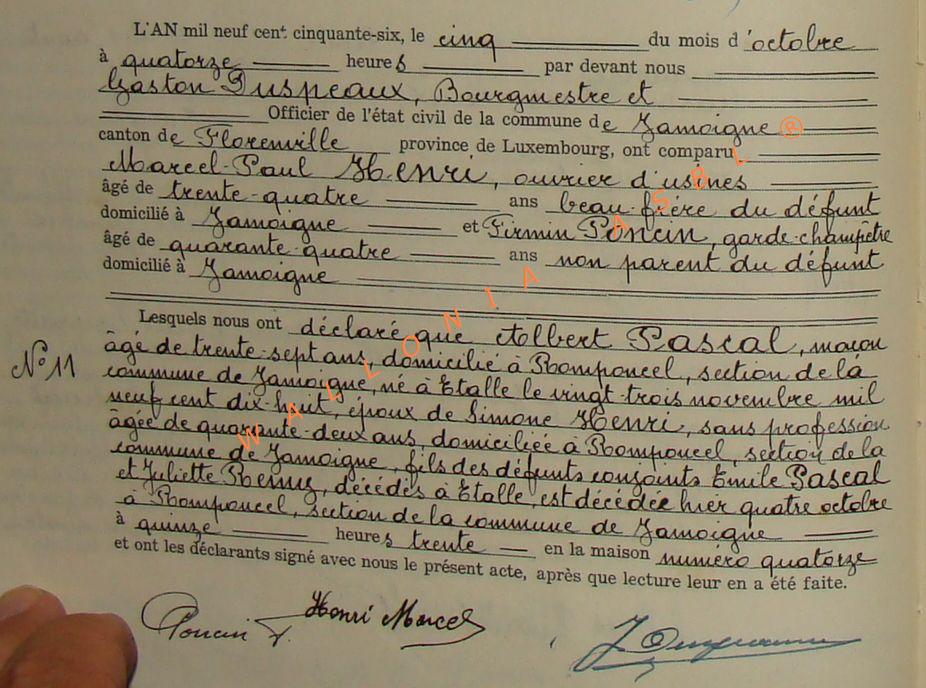 L'AN mil neuf cent cinquante-six, le cinq du mois d'octobre
à quatorze heures par devant nous
Gaston Duspeaux, Bourgmestre et
Officier de l'état civil de la commune de Jamoigne
canton de Florenville province de Luxembourg, ont comparu
Marcel-Paul Henri, ouvrier d'usines
âgé de trente-quatre ans beau-frère du défunt
domicilié à Jamoigne et Firmin Poncin, garde-champêtre
âgé de quarante-quatre ans non parent du défunt
domicilié à Jamoigne
Lesquels nous ont déclaré que Albert Pascal, maçon
âgé de trente-sept ans, domicilié à Romponcel, section de la
N° 11
commune de Jamoigne, né à Etalle le vingt-trois novembre mil
neuf cent dix-huit, époux de Simone Henri, sans profession
âgée de quarante-deux ans, domiciliée à Romponcel, section de la
commune de Jamoigne, fils des défunts conjoints Emile Pascal
et Juliette Remy, décédés à Etalle, est décédée hier quatre octobre
à Romponcel, section de la commune de Jamoigne
à quinze heures trente en la maison numéro quatorze
et ont les déclarants signé avec nous le présent acte, après que lecture leur en a été faite.
Poncin F. Henri Marcel
WALLONIA ASBL ®